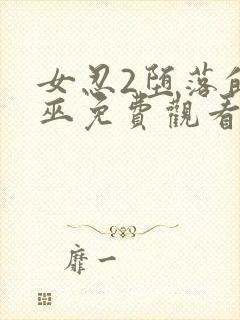 女忍2堕落的
巫免費觀看
靡一